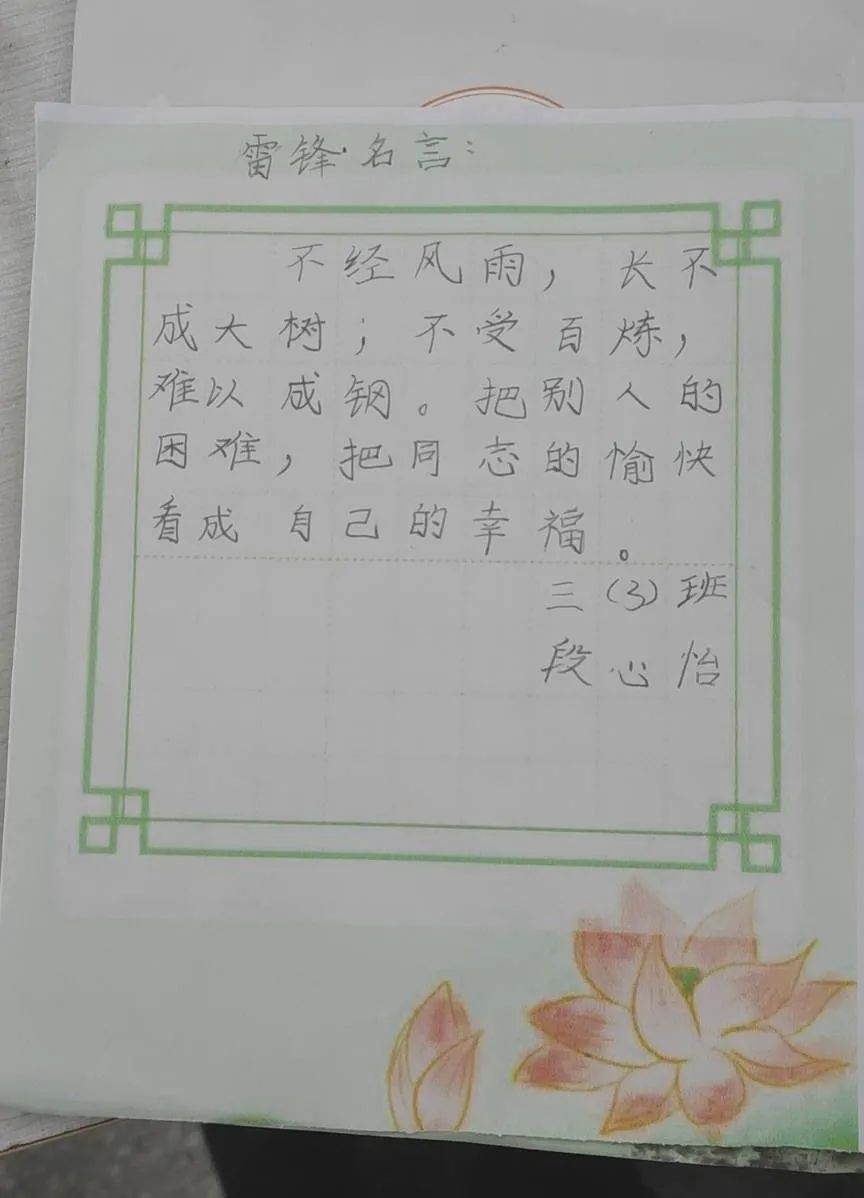 雷锋·名言：
不经风雨，长不
成大树；不受百炼，
难以成钢。把别人的
困难，把同志的愉快
看成自己的幸福。
三（3）班
段心怡